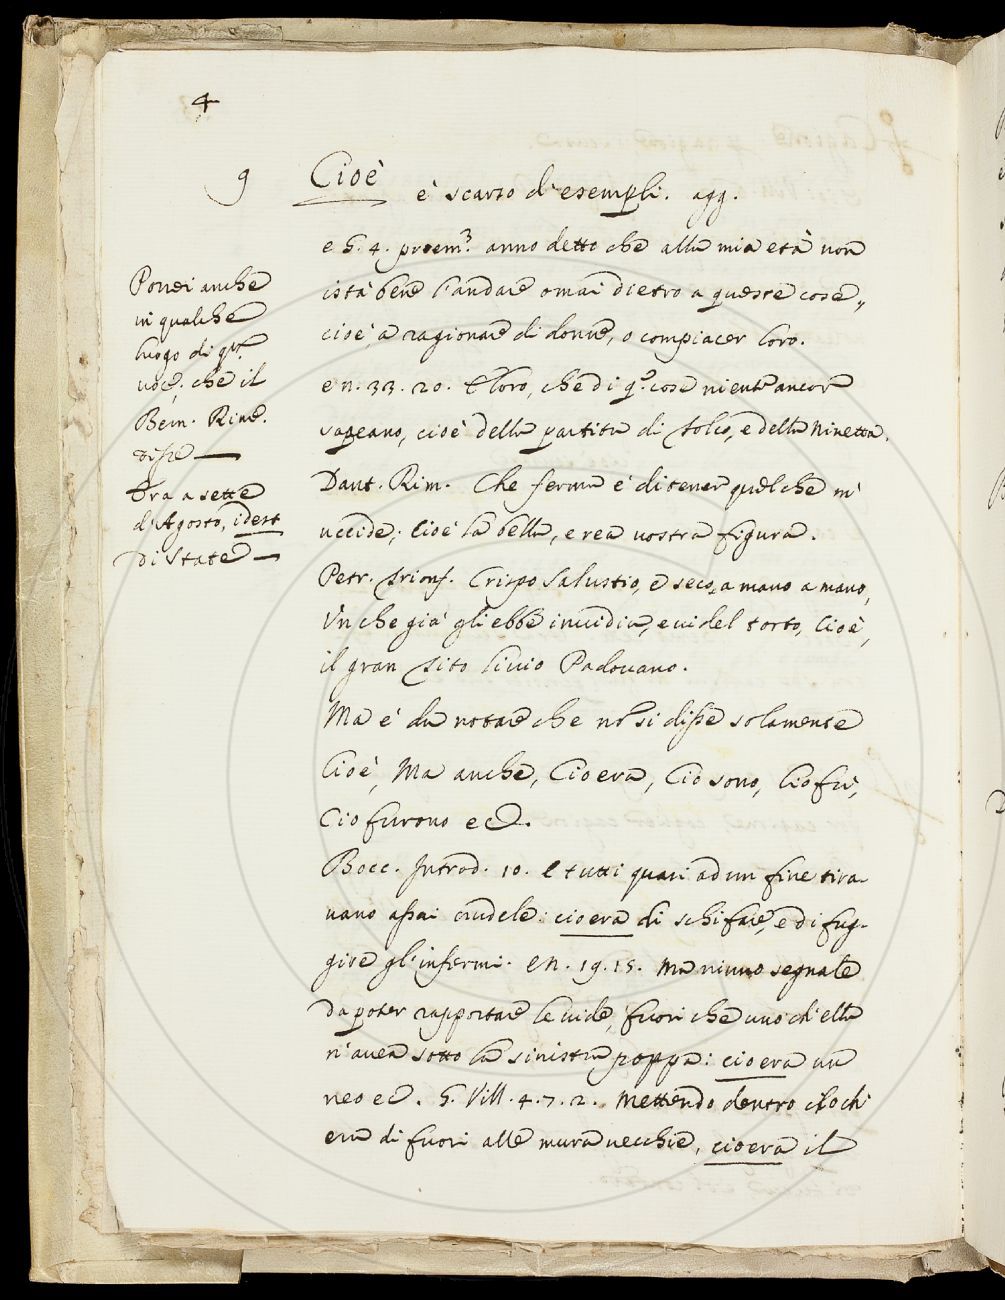 4
9 Cioè
è scarso di esempli. agg.
e G. 4. proem.º anno detto che alla mia età non
istà bene l'andare omai dietro a queste cose,,
cioè, a ragionare di donne, o compiacer loro.
e n. 33. 20. E loro, che di q.º cose niente ancora
sapeano, cioè della partita di Folco, e della Ninetta.
Dant. Rim. Che ferma è di tener quel che m'
uccide; Cioè la bella, e rea vostra figura.
Petr. Trionf. Crispo Salustio, e seco, a mano a mano,
Un che già gli ebbe invidia, e videl torto, Cioè,
il gran Tito Livio Padovano.
Ma è da notare che nō si disse solamente
Cioè, Ma anche, Cio era, Ciò sono, Cio fu,
Cio furono ec.
Bocc. Introd. 10. e tutti quasi ad un fine tira-
vano assai crudele: cio era di schifare, e di fug-
gire gl'infermi. e n. 19. 15. Ma niuno segnale
da poter rapportare le vide, fuori che uno ch'ella
n'avea sotto la sinistra poppa: cio era un
neo ec. G. Vill. 4. 7. 2. Mettendo dentro cio ch'
era di fuori alle mura vecchie, cio era il
Ponei anche
in qualche
luogo di q.ta
voce, che il
Bem. Rime.
disse —
Era a sette
d'Agosto, idest
di State —